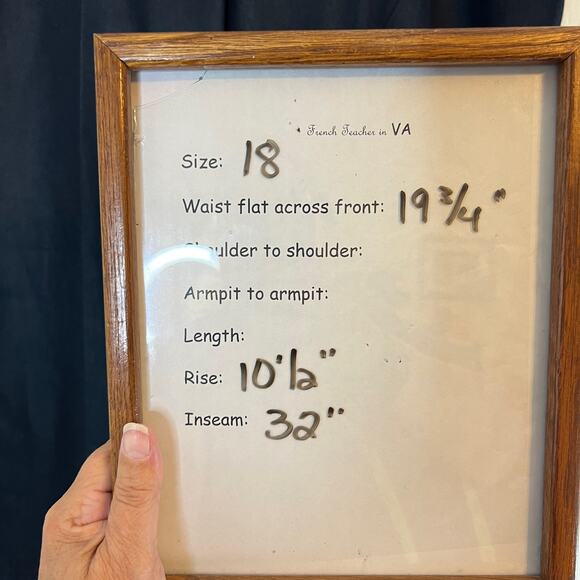 French Teacher in VA
Size: 18
Waist flat across front: 19 3/4"
Shoulder to shoulder:
Armpit to armpit:
Length:
Rise: 10 1/2"
Inseam: 32"